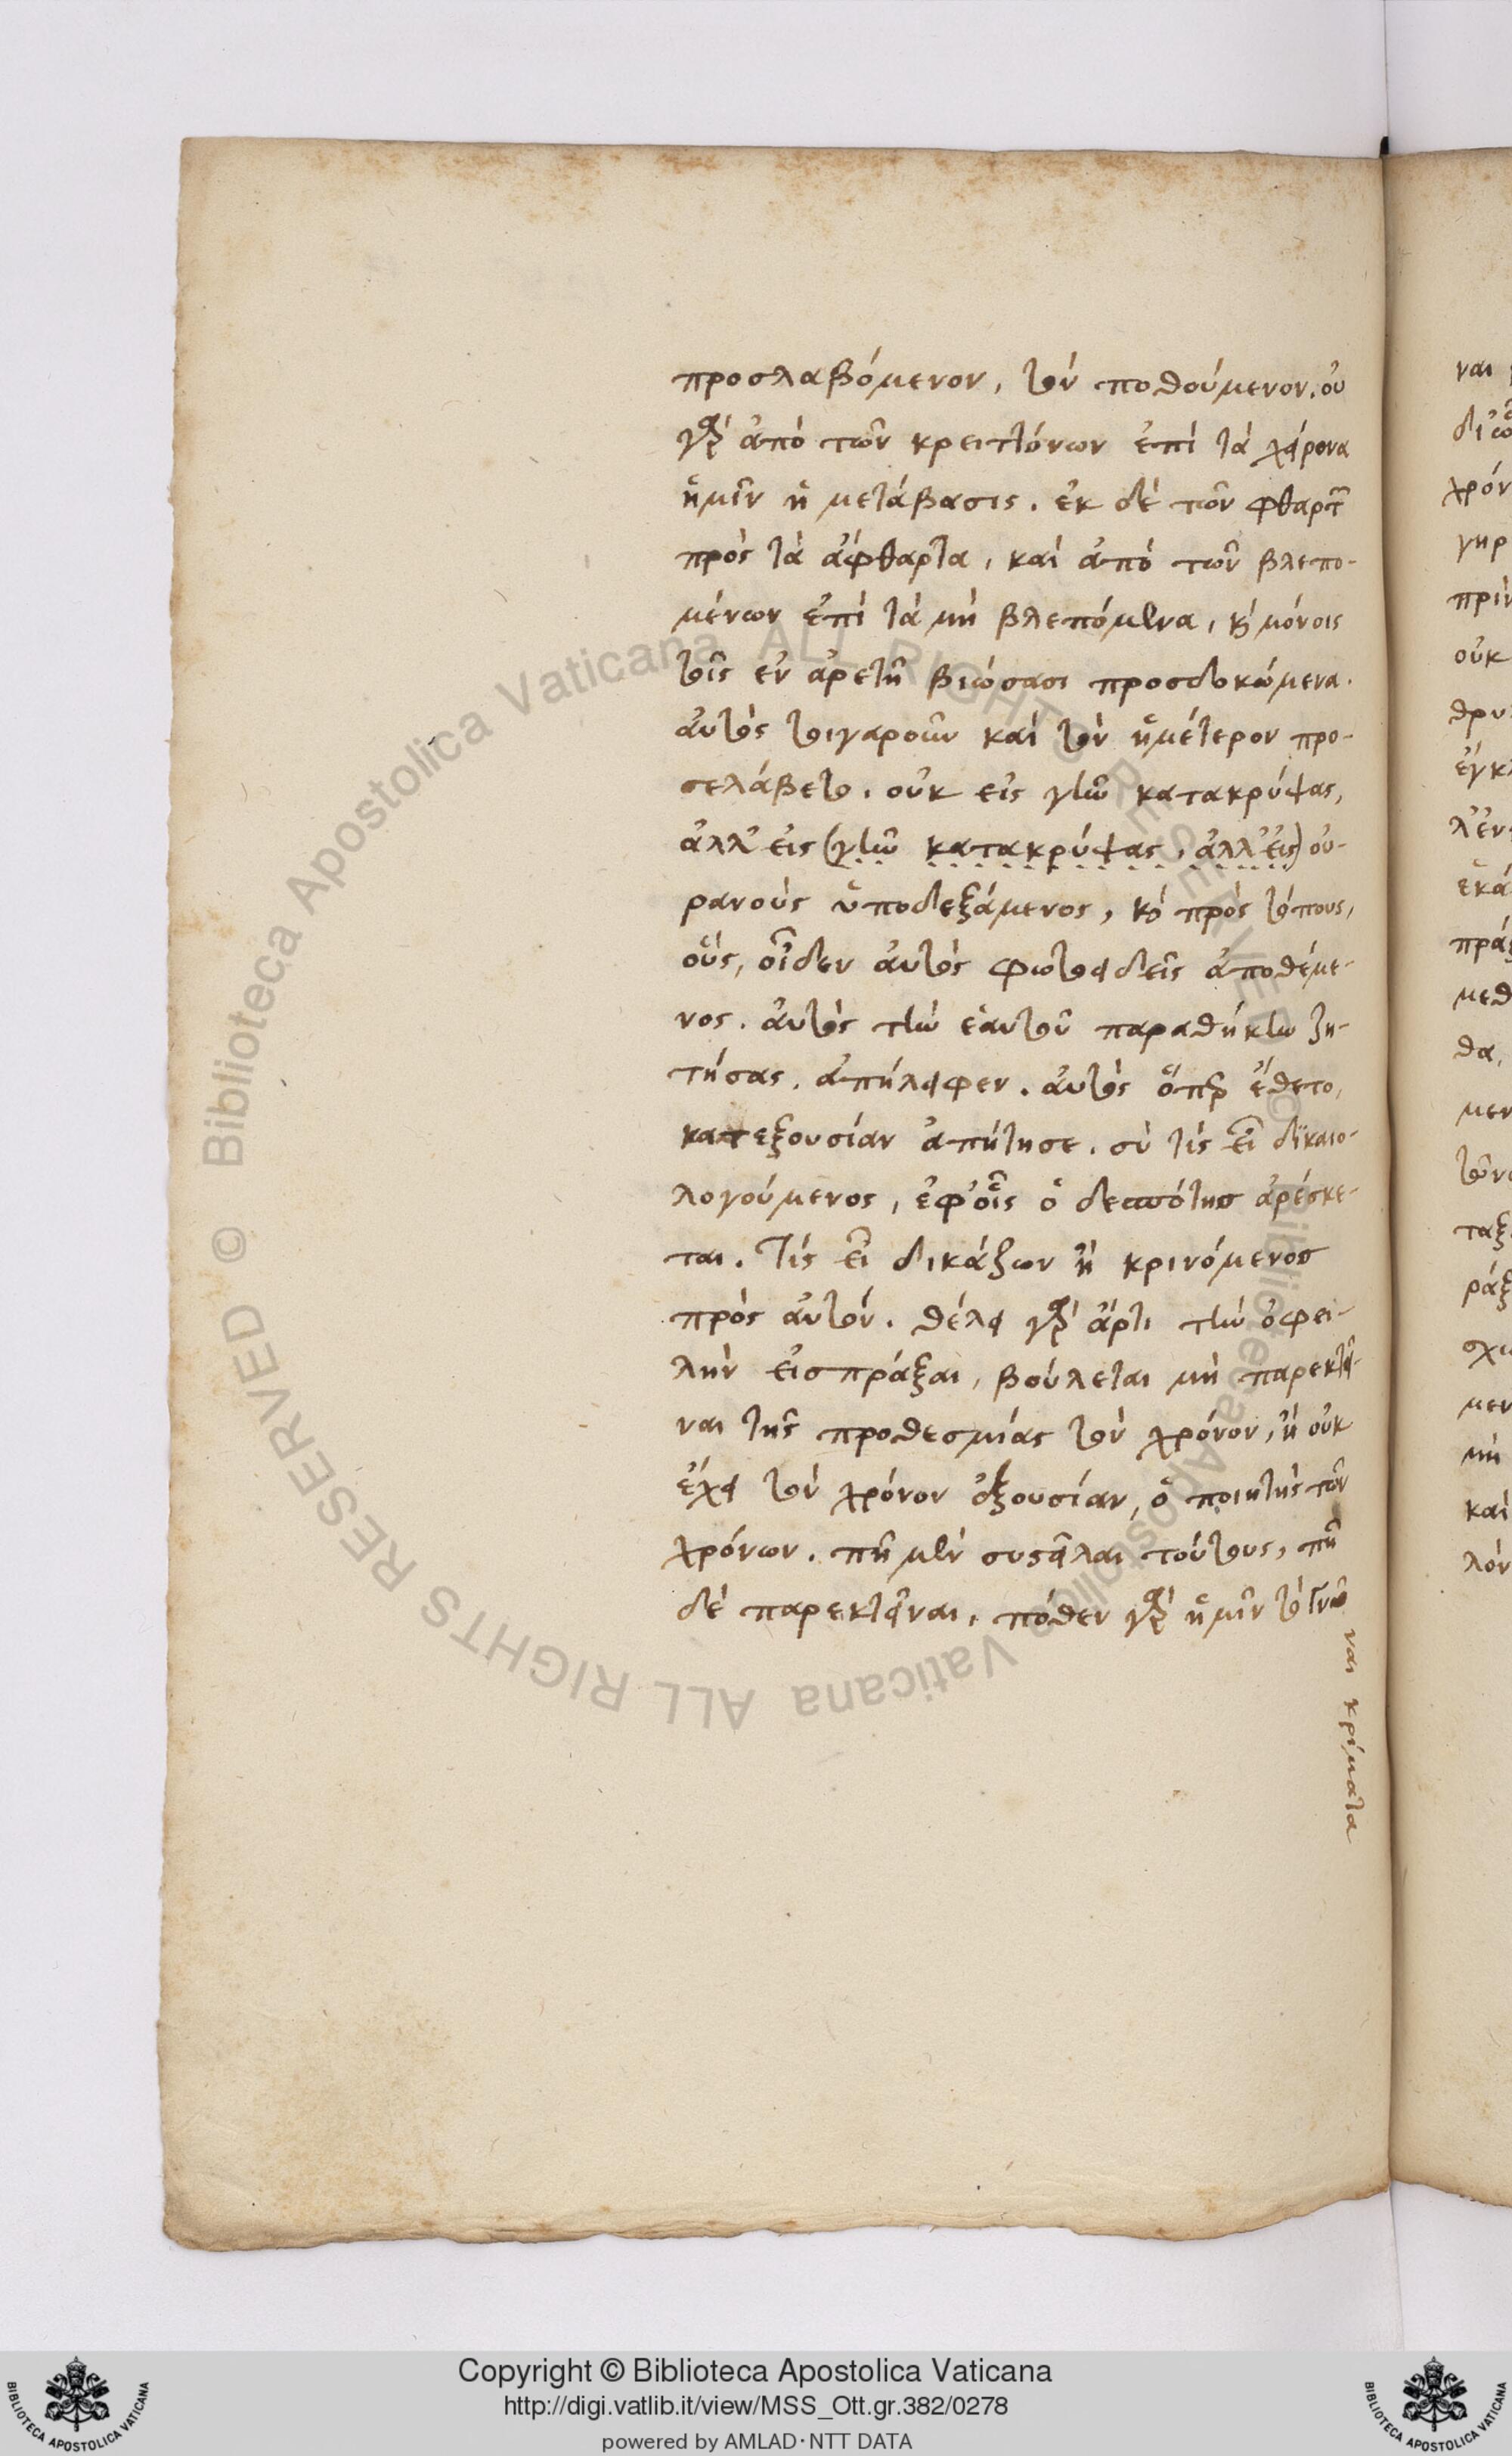 προσλαβόμενον, τὸν ποθούμενον. οὐ
γὰρ ἀπὸ τῶν κρειττόνων ἐπὶ τὰ χείρονα
ἡμῖν ἡ μετάβασις. ἐκ δὲ τῶν φθαρτῶν
πρὸς τὰ ἄφθαρτα, καὶ ἀπὸ τῶν βλεπο-
μένων ἐπὶ τὰ μὴ βλεπόμενα, καὶ μόνοις
τοῖς ἐν ἀρετῇ βιώσασι προσδοκώμενα.
αὐτὸς τοιγαροῦν καὶ τὸν ἡμέτερον προ-
σελάβετο. οὐκ εἰς γῆν κατακρύψας,
ἀλλ' εἰς (γῆν κατακρύψας, ἀλλ' εἰς) οὐ-
ρανοὺς ὑποδεξάμενος, καὶ πρὸς τόπους,
οὓς, οἶδεν αὐτὸς φωτοειδεῖς ἀποθέμε-
νος. αὐτὸς τὴν ἑαυτοῦ παραθήκην ζη-
τήσας, ἀπήλειφεν. αὐτὸς ὅπερ ἔθετο,
κατεξουσίαν ἀπῄτησε. σὺ τίς εἶ δικαιο-
λογούμενος, ἐφ' οἷς ὁ δεσπότης ἀρέσκε-
ται. Τίς εἶ δικάζων ἢ κρινόμενος
πρὸς αὐτόν. θέλει γὰρ ἄρτι τὴν ὀφει-
λὴν εἰσπράξαι, βούλεται μὴ παρεκτεῖ-
ναι τῆς προθεσμίας τὸν χρόνον, ἢ οὐκ
ἔχει τὸν χρόνον ἐξουσίαν, ὁ ποιητὴς τῶν
χρόνων. πῆ μὲν συστεῖλαι τούτους, πῆ
δὲ παρεκτεῖναι, πόθεν γὰρ ἡμῖν τὸ γνῶ
ναι κρίματα
ναι
χρόν
γηρ
πρὶν
οὐκ
θρυ
ἐγκ
λ' ἐν
ἑκά
πρά
μεθ
θα,
μεν
ταξ
ράξ
σχω
μεν
μὴ
καὶ
λόν
Copyright © Biblioteca Apostolica Vaticana
http://digi.vatlib.it/view/MSS_Ott.gr.382/0278
powered by AMLAD·NTT DATA
BIBLIOTECA APOSTOLICA VATICANA
BIBLIOTECA APOSTOLICA VATICANA
© Biblioteca Apostolica Vaticana ALL RIGHTS RESERVED
© Biblioteca Apostolica Vaticana ALL RIGHTS RESERVED